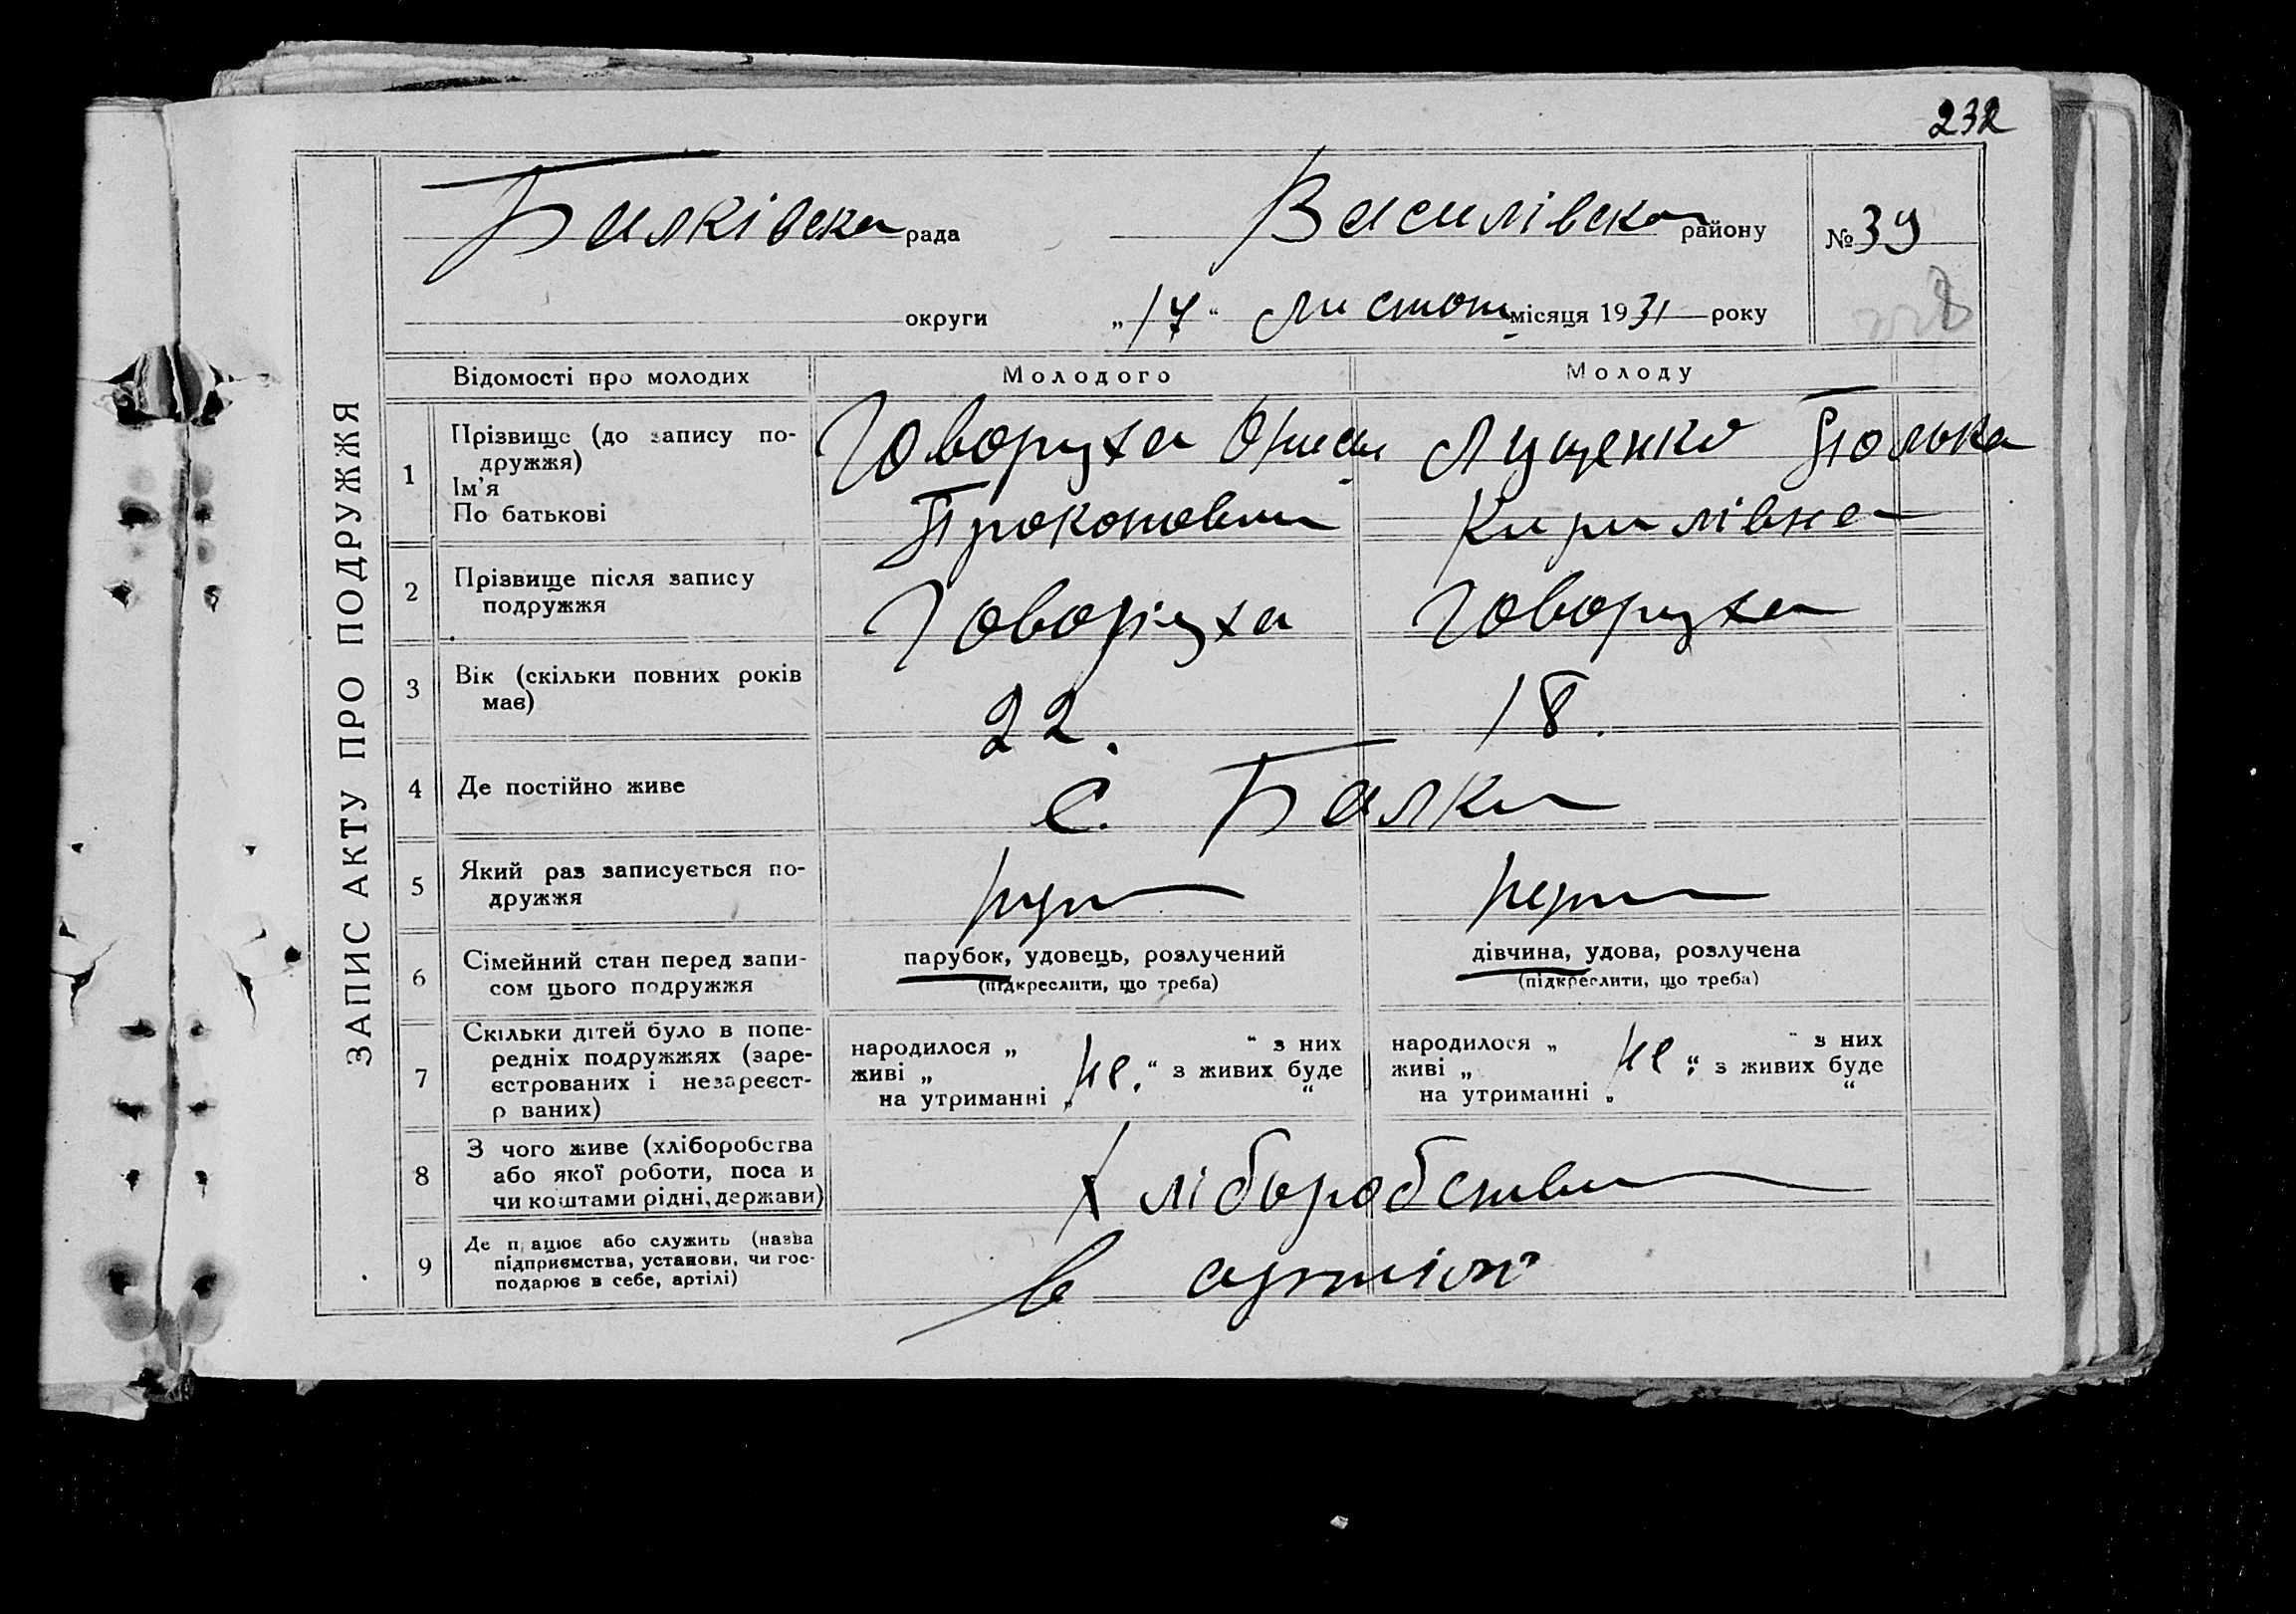 232
Балківска рада Василівско району № 39
округи „17“ листоп місяця 1931 року
228
ЗАПИС АКТУ ПРО ПОДРУЖЖЯ
Відомості про молодих Молодого Молоду
1 Прізвище (до запису подружжя) Говоруха Лущенко Полька
Ім'я
По батькові Прокопович Кирилівна
2 Прізвище після запису подружжя Говоруха Говоруха
3 Вік (скільки повних років має) 22. 18.
4 Де постійно живе с. Балки
5 Який раз записується подружжя перш
6 Сімейний стан перед записом цього подружжя парубок, удовець, розлучений дівчина, удова, розлучена
(підкреслити, що треба) (підкреслити, що треба)
7 Скільки дітей було в попередніх подружжях (зареєстрованих і незареєстр ваних)
народилося „ не. “ з них народилося „ не. “ з них
живі „ “ з живих буде живі „ “ з живих буде
на утриманні „ “ на утриманні „ “
8 З чого живе (хліборобства або якої роботи, поса и чи коштами рідні, держави) Хліборобства
9 Де п ацює або служить (назва підприємства, установи, чи господарює в себе, артілі) в артілі